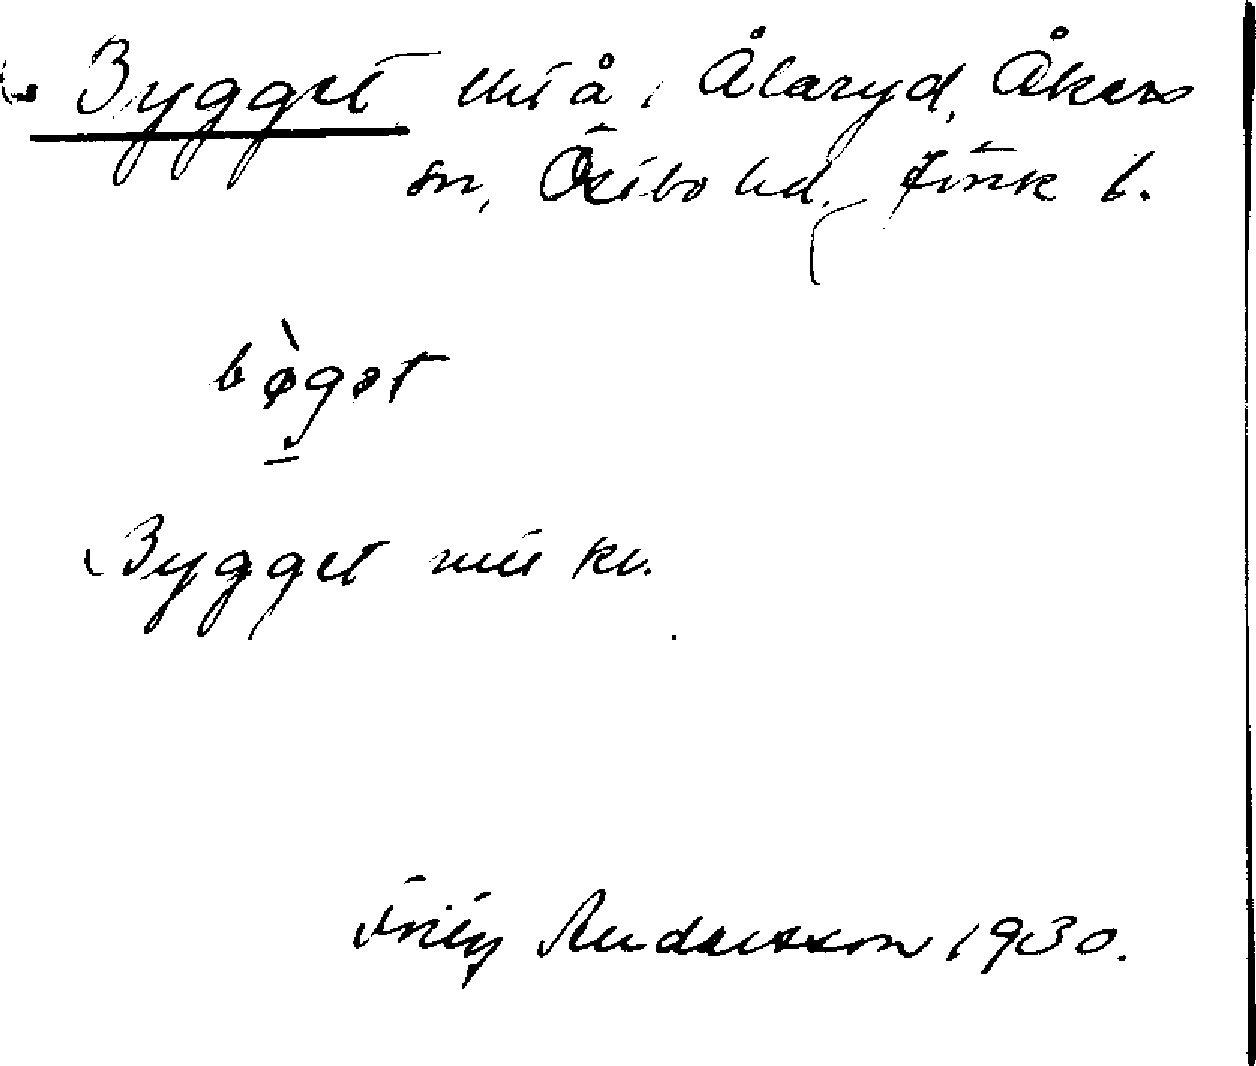 Bygget utä, Ålaryd, Åkers
sn, Östbo hd, Jönk l.
bø̀gət
Bygget
Fritz Andersson 1930.